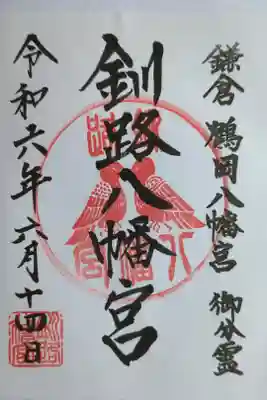 鎌倉 鶴岡八幡宮 御分霊
釧路八幡宮
令和六年六月十四日